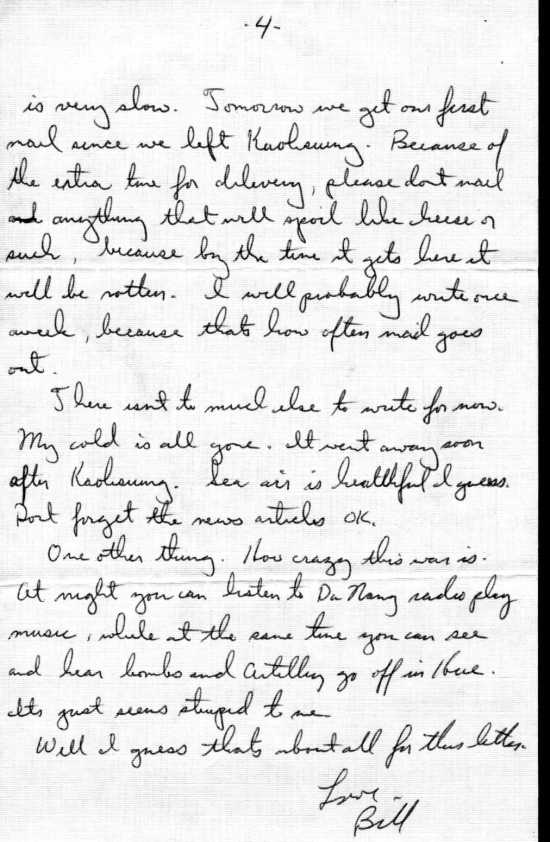 -4-
is very slow. Tomorrow we get our first
mail since we left Kaohsiung. Because of
the extra time for delivery, please dont mail
anything that will spoil like cheese or
such, because by the time it gets here it
will be rotten. I will probably write once
aweek, because thats how often mail goes
out.
There isnt to much else to write for now.
My cold is all gone. It went away soon
after Kaohsiung. Sea air is healthful I guess.
Dont forget the news articles OK.
One other thing. How crazy this war is.
At night you can listen to Da Nang radio play
music, while at the same time you can see
and hear bombs and Artillery go off in Hue.
Its just seems stupid to me
Well I guess thats about all for this letter.
Love -
Bill